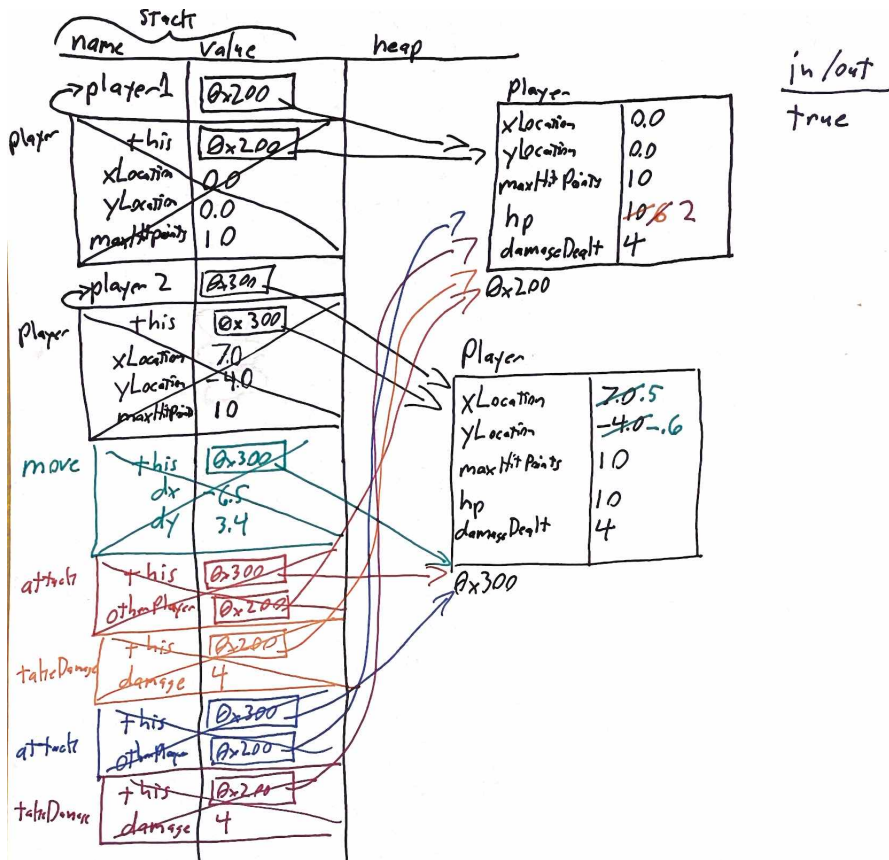 stack
name value heap
player1 0x200
player this 0x200
xLocation 0.0
yLocation 0.0
maxHitpoints 10
player2 0x300
player this 0x300
xLocation 7.0
yLocation -4.0
maxHitPoints 10
move this 0x300
dx -6.5
dy 3.4
attack this 0x300
otherPlayer 0x200
takeDamage this 0x200
damage 4
attack this 0x300
otherPlayer 0x200
takeDamage this 0x200
damage 4
Player
xLocation 0.0
yLocation 0.0
maxHitPoints 10
hp 10 6 2
damageDealt 4
0x200
Player
xLocation 7.0 .5
yLocation -4.0 -.6
maxHitPoints 10
hp 10
damageDealt 4
0x300
in/out
true